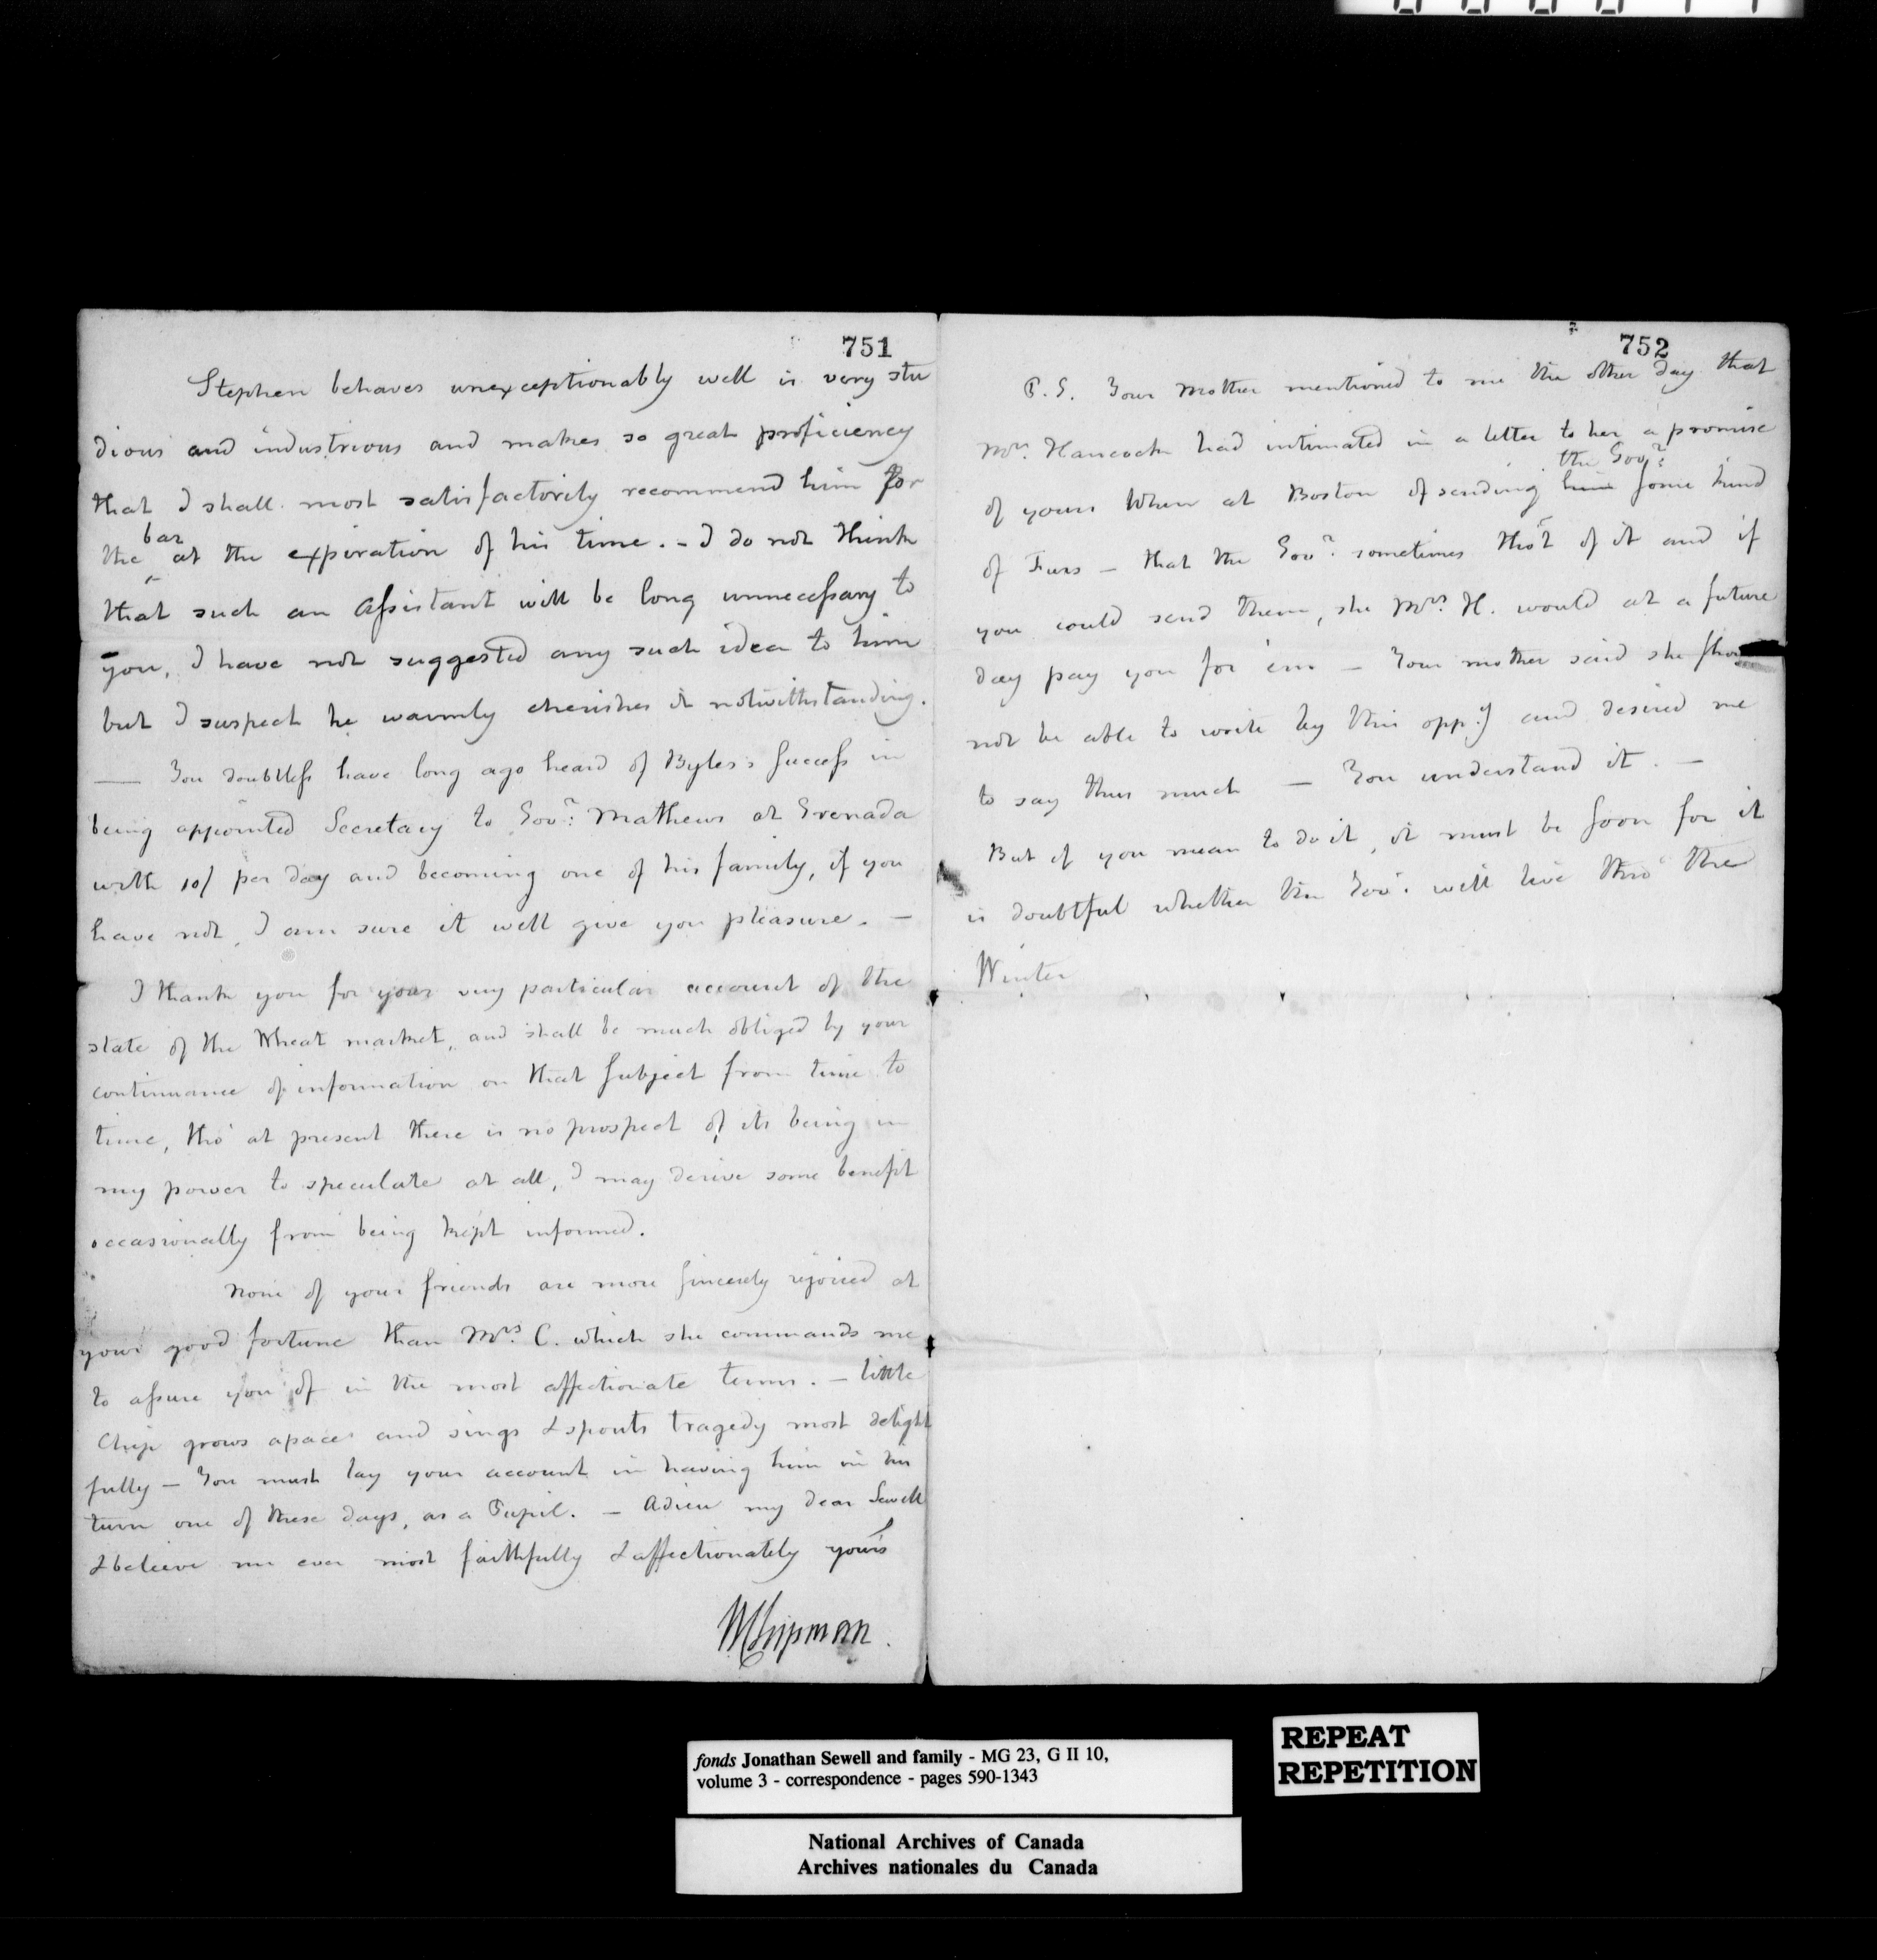 751
Stephen behaves unexceptionably well is very stu
dious and industrious and makes so great proficiency
that I shall most satisfactorily recommend him for
the bar at the expiration of his time. - I do not think
that such an assistant will be long unnecessary to
you, I have not suggested any such idea to him
but I suspect he warmly cherishes it notwithstanding.
— You doubtless have long ago heard of Byles's success in
being appointed Secretary to Govr: Mathews at Grenada
with 10/ per day and becoming one of his family, if you
have not, I am sure it will give you pleasure. —
I thank you for your very particular account of the
state of the Wheat market, and shall be much obliged by your
continuance of information on that subject from time to
time, tho' at present there is no prospect of its being in
my power to speculate at all, I may derive some benefit
occasionally from being kept informed.
None of your friends are more sincerely rejoiced at
your good fortune than Mrs. C. which she commands me
to assure you of in the most affectionate terms. — little
Chip grows apace and sings & spouts tragedy most delight
fully — You must lay your account in having him in his
turn one of these days, as a Pupil. — Adieu my dear Sewell
& believe me ever most faithfully & affectionately yours
W Chipman.
752
P.S. Your Mother mentioned to me the other day that
Mrs. Hancock had intimated in a letter to her a promise
the Govr:
of yours when at Boston of sending him some kind
of Furs — that the Govr: sometimes thot of it and if
you could send them, she Mrs. H. would at a future
day pay you for 'em — Your mother said she
not be able to write by this oppy. and desired me
to say thus much — You understand it. —
But if you mean to do it, it must be soon for it
is doubtful whether the Govr. will live thro' the
Winter
fonds Jonathan Sewell and family - MG 23, G II 10,
volume 3 - correspondence - pages 590-1343
REPEAT
REPETITION
National Archives of Canada
Archives nationales du Canada